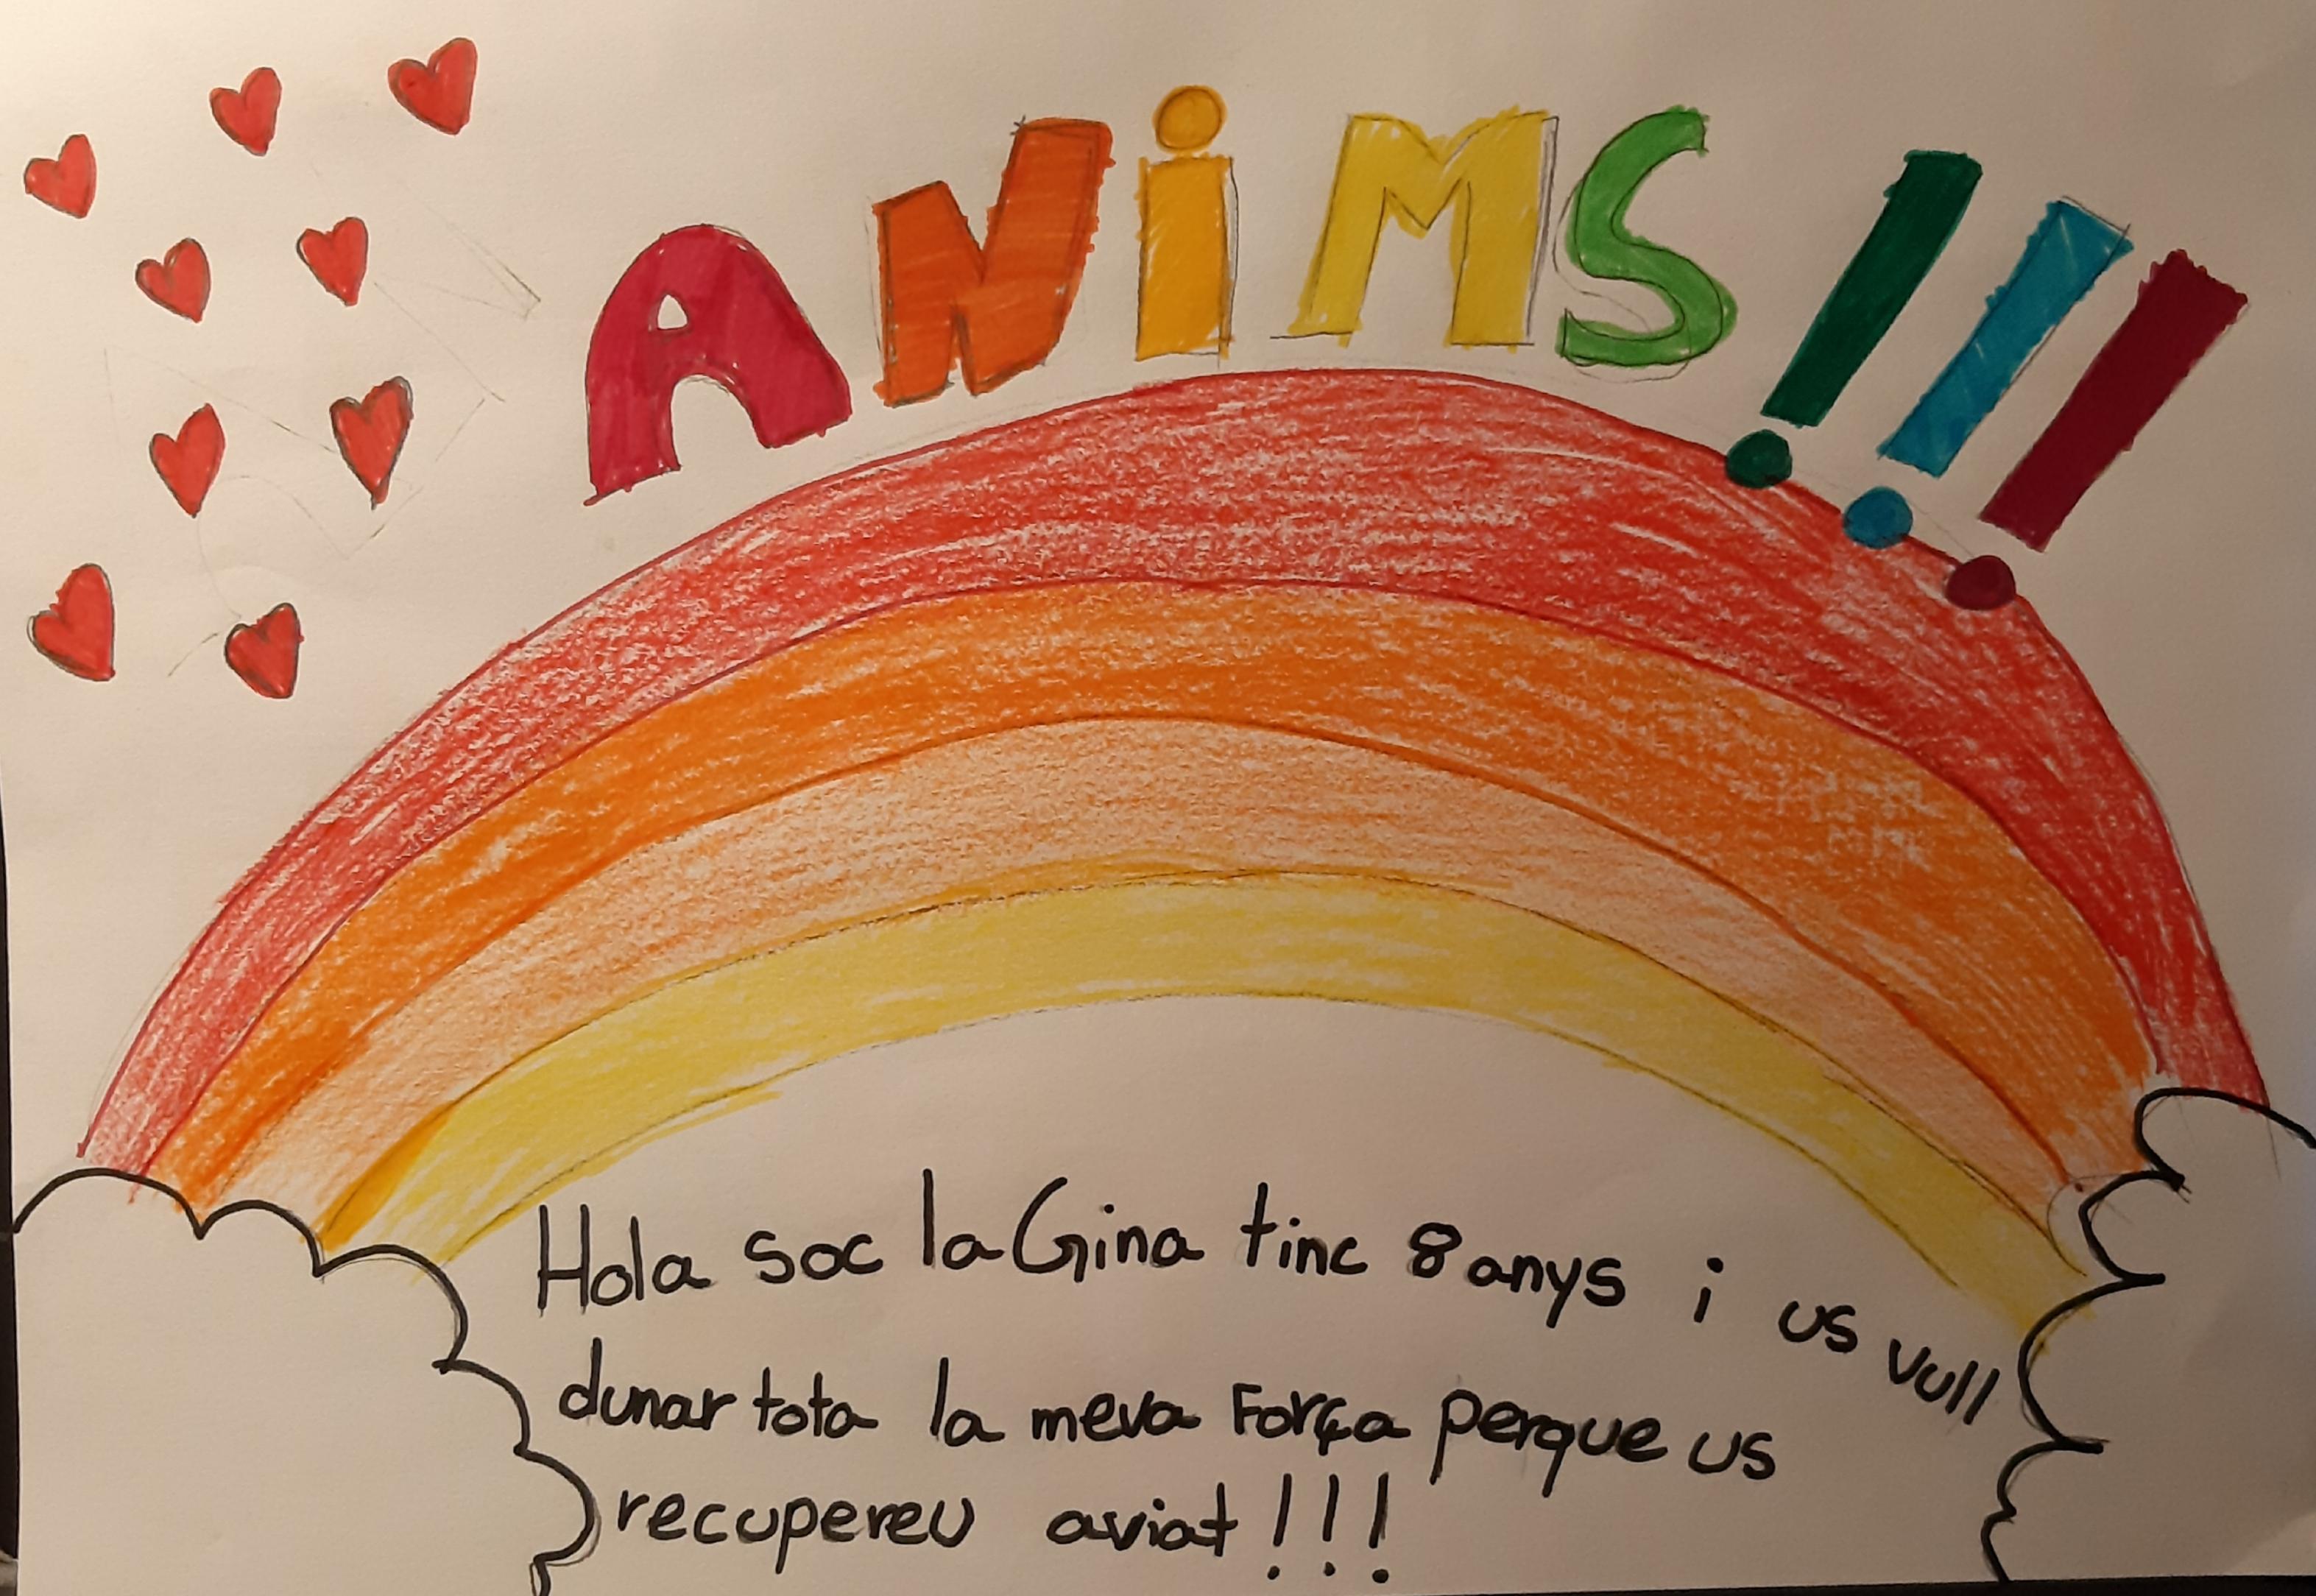 ANiMS!!!
Hola soc la Gina tinc 8 anys i us vull
dunar tota la meva Força perque us
recupereu aviat!!!